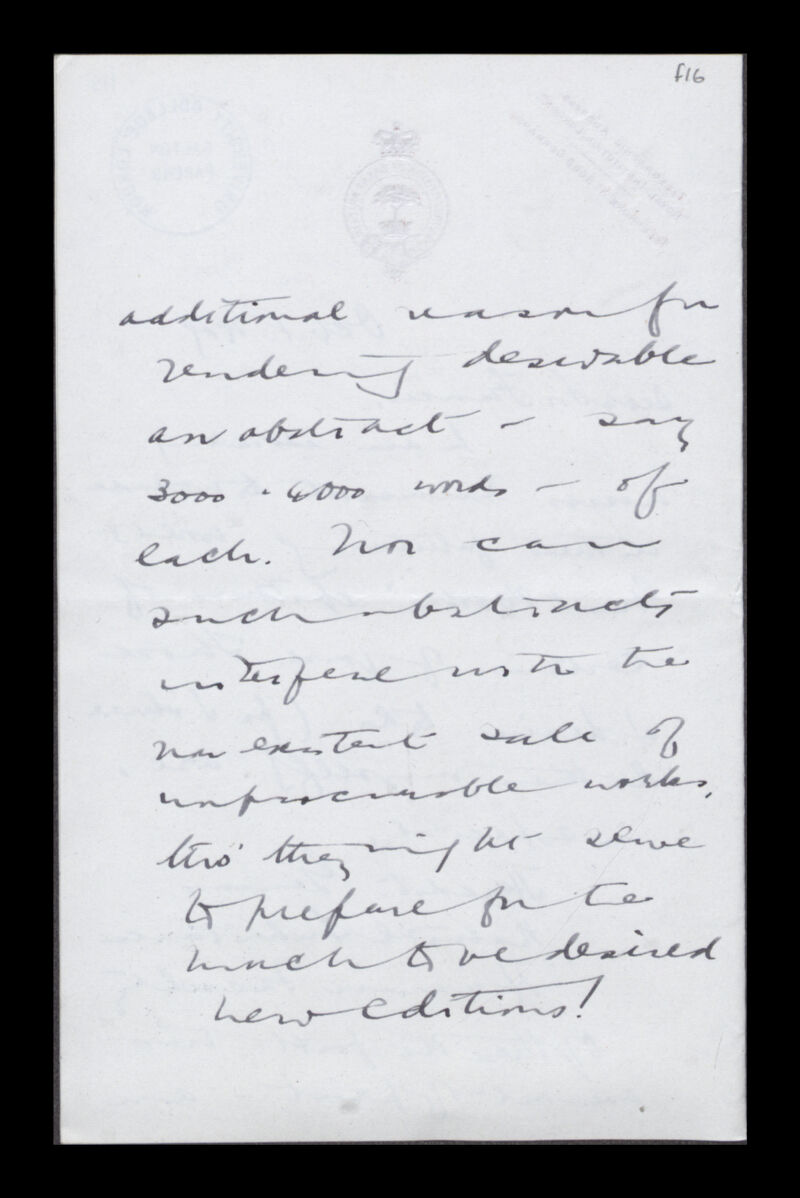 f16
additional reason for
rendering desirable
an abstract – say
3000 - 4000 words – of
each. Nor can
such abstracts
interfere with the
non existent sale of
unprocurable works,
tho' they might serve
to prepare for the
much to be desired
new editions!